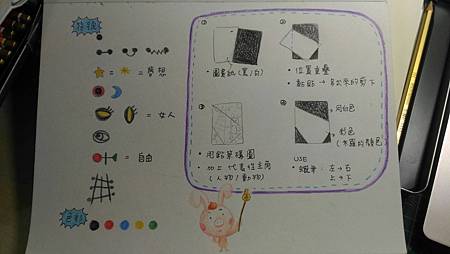 符號
= 夢想
= 女人
= 自由
色彩
①
• 圖畫紙 (黑/白)
②
• 位置重疊
• 黏貼 → 多出來的剪下
③
• 用鉛筆構圖
• 加上代表性主角
(人物/動物)
④
→ 同白色
彩色
(米羅的顏色)
USE
蠟筆: 左→右
上→下